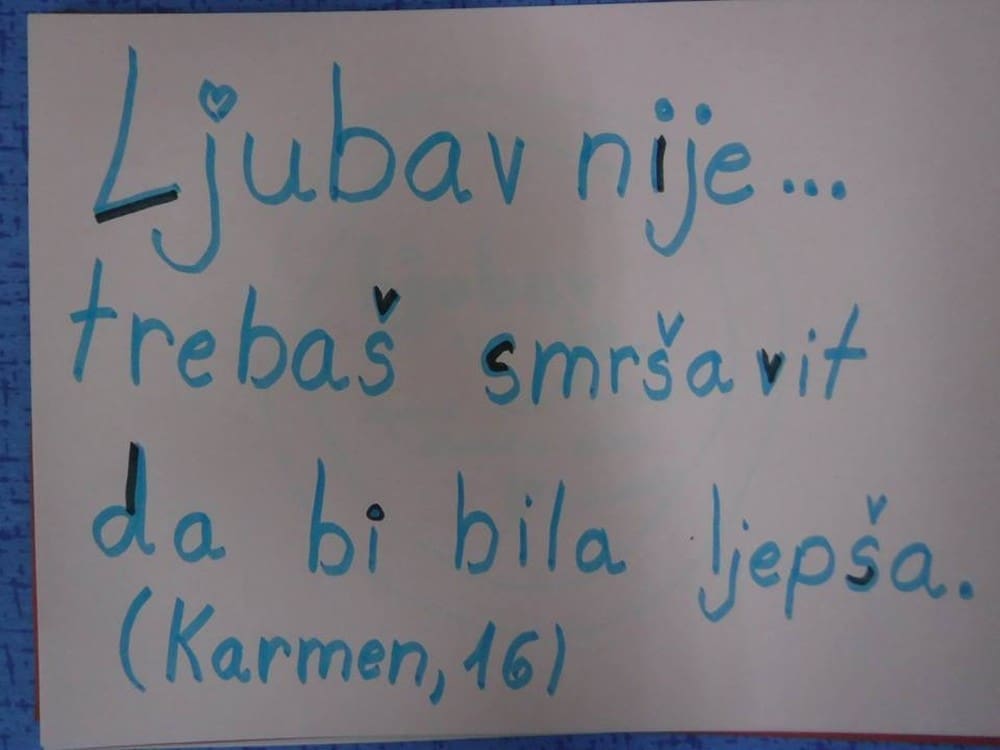 Ljubav nije...
trebaš smršavit
da bi bila ljepša.
(Karmen, 16)